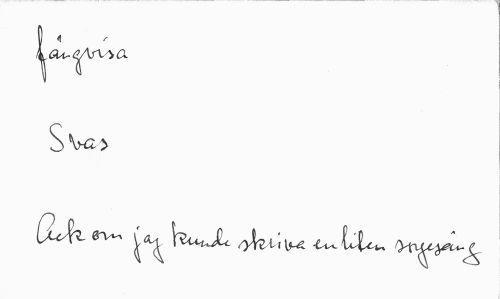 fångvisa
Svas
Ack om jag kunde skriva en liten sorgesång